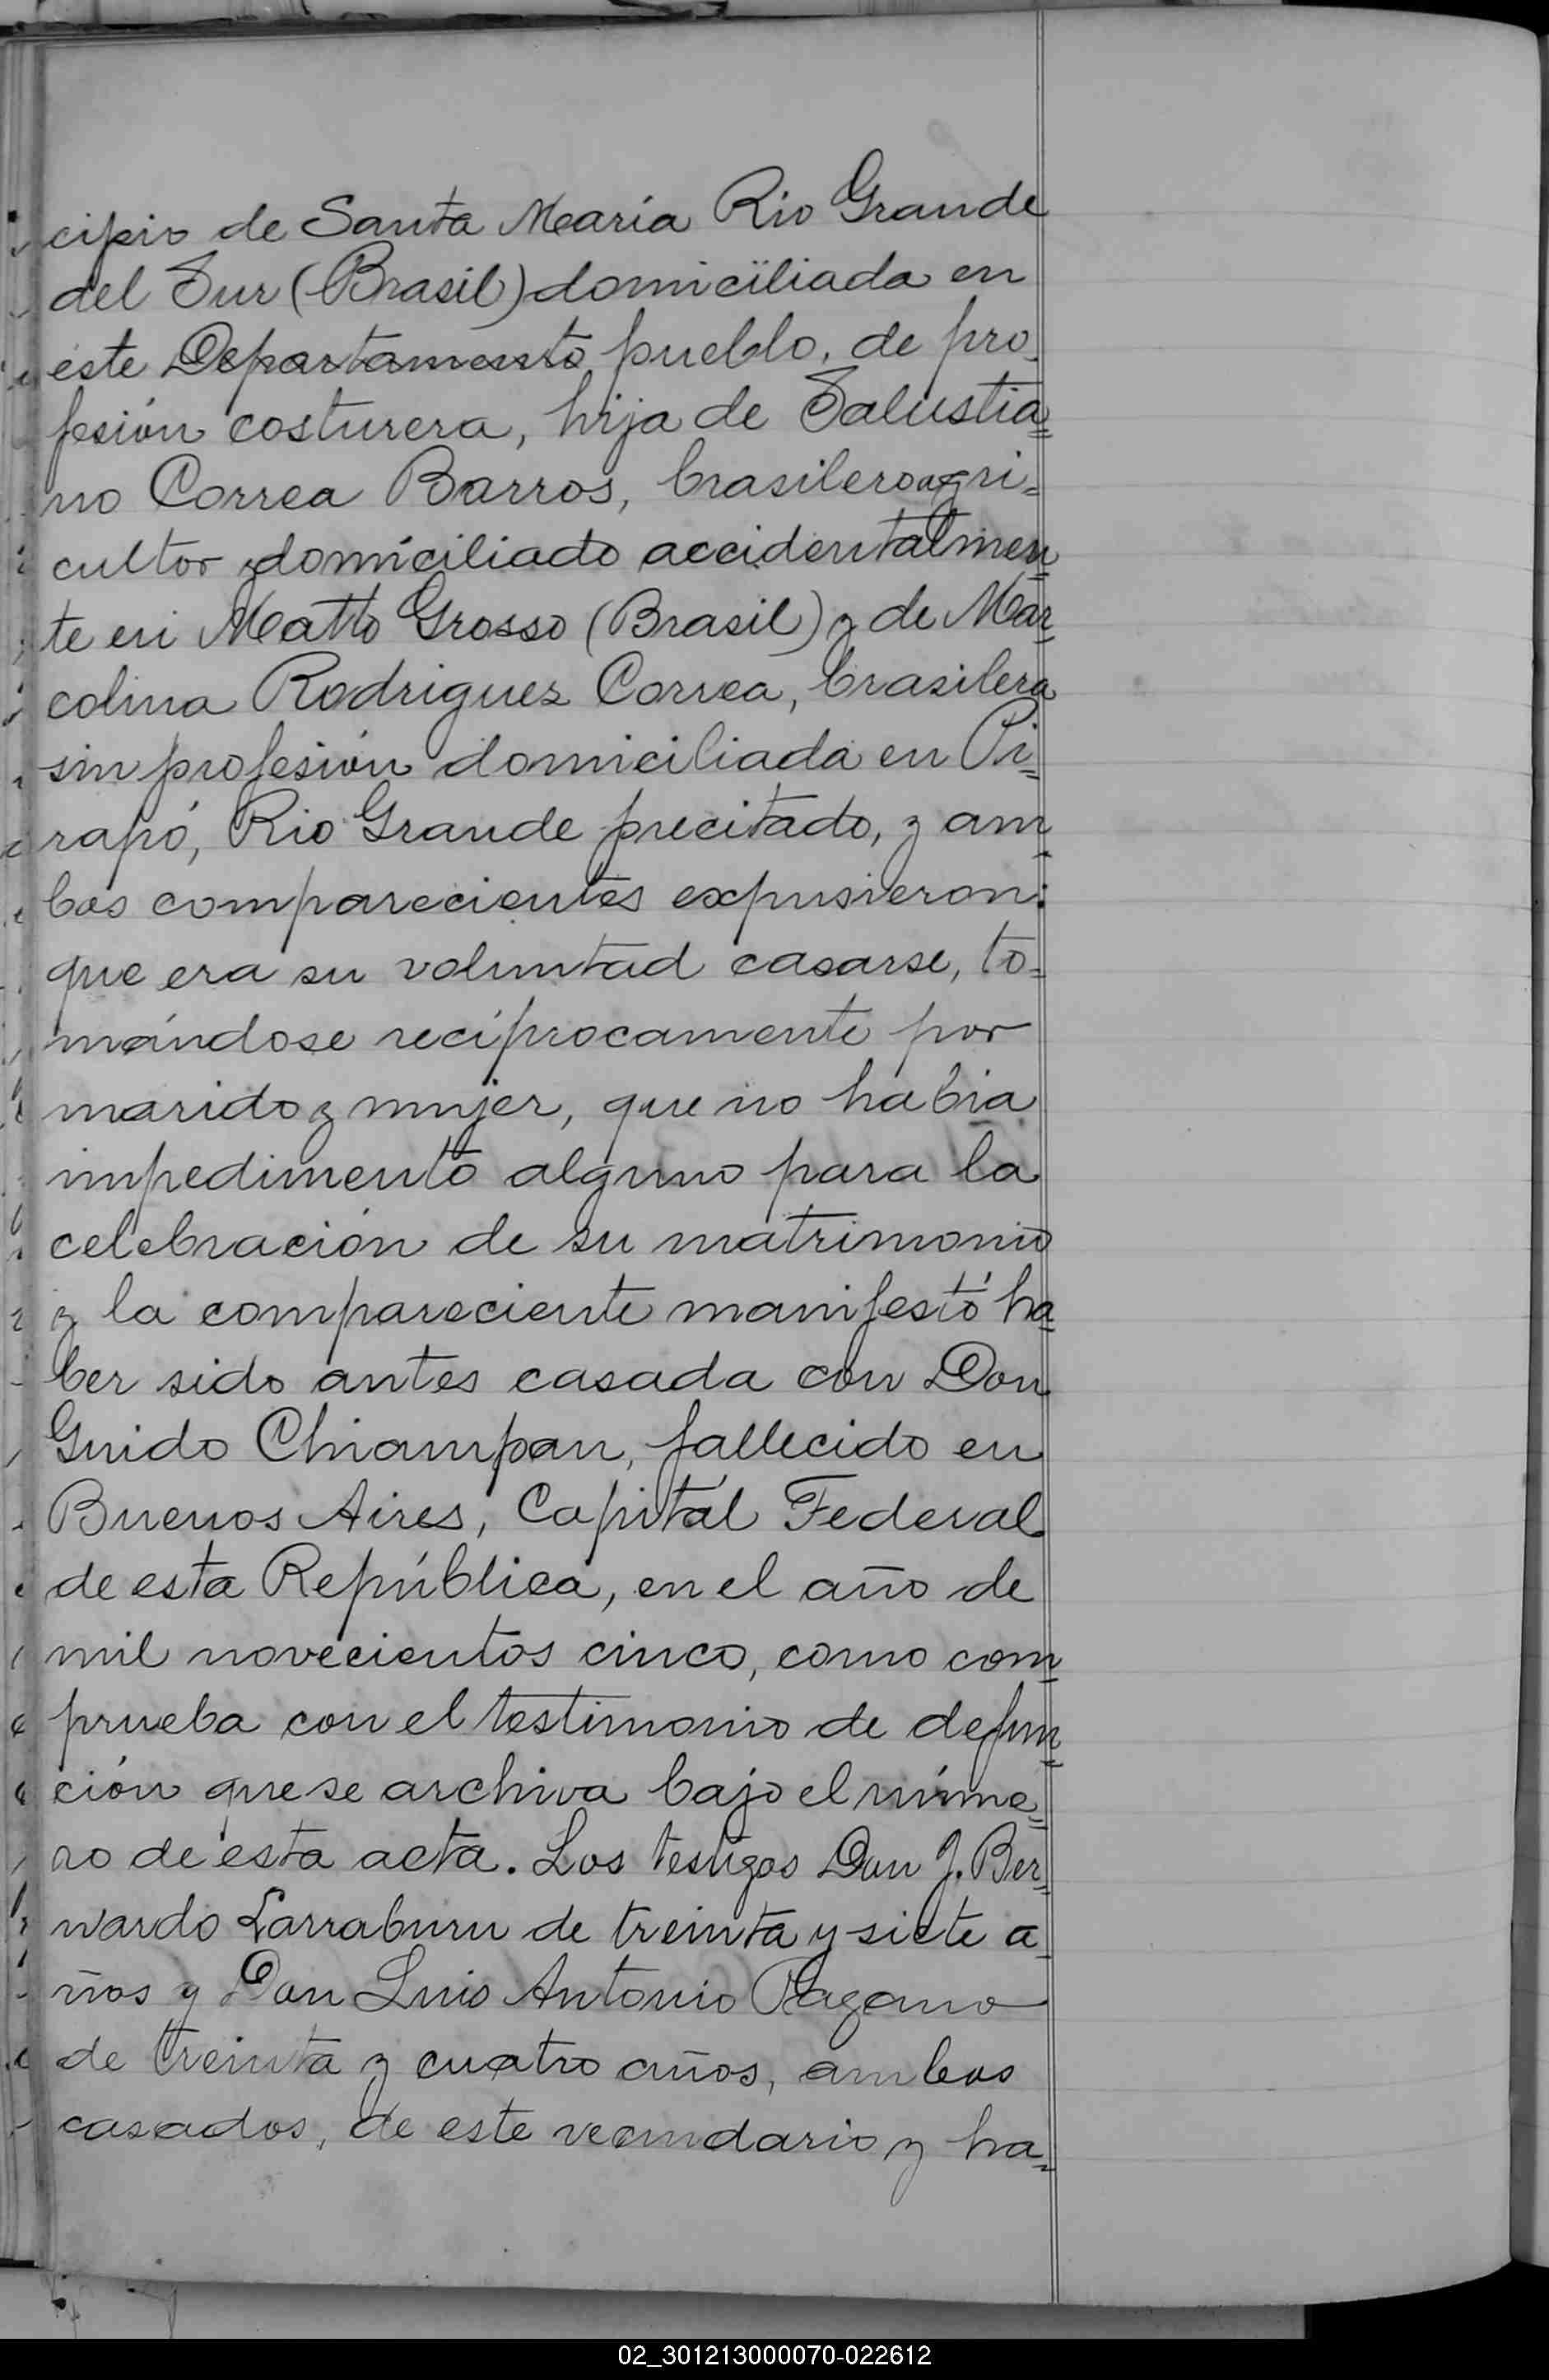 cipio de Santa María Rio Grande
del Sur (Brasil) domiciliada en
este Departamento pueblo, de pro-
fesión costurera, hija de Salustia=
no Correa Barros, brasilero agri=
cultor domiciliado accidentalmen=
te en Matto Grosso (Brasil) y de Mar=
colina Rodrigues Correa, brasilera
sin profesión domiciliada en Pi=
rapó, Rio Grande precitado, y am
bos comparecientes expusieron:
que era su voluntad casarse, to=
mándose recíprocamente por
marido y mujer, que no habia
impedimento alguno para la
celebración de su matrimonio
y la compareciente manifestó ha=
ber sido antes casada con Don
Guido Chiampan, fallecido en
Buenos Aires, Capital Federal
de esta República, en el año de
mil novecientos cinco, como com=
prueba con el testimonio de defun=
ción que se archiva bajo el núme=
ro de esta acta. Los testigos Don J. Ber=
nardo Larraburu de treinta y siete a=
ños y Don Luis Antonio Pagano
de treinta y cuatro años, ambos
casados, de este vecindario y ha=
02_301213000070-022612